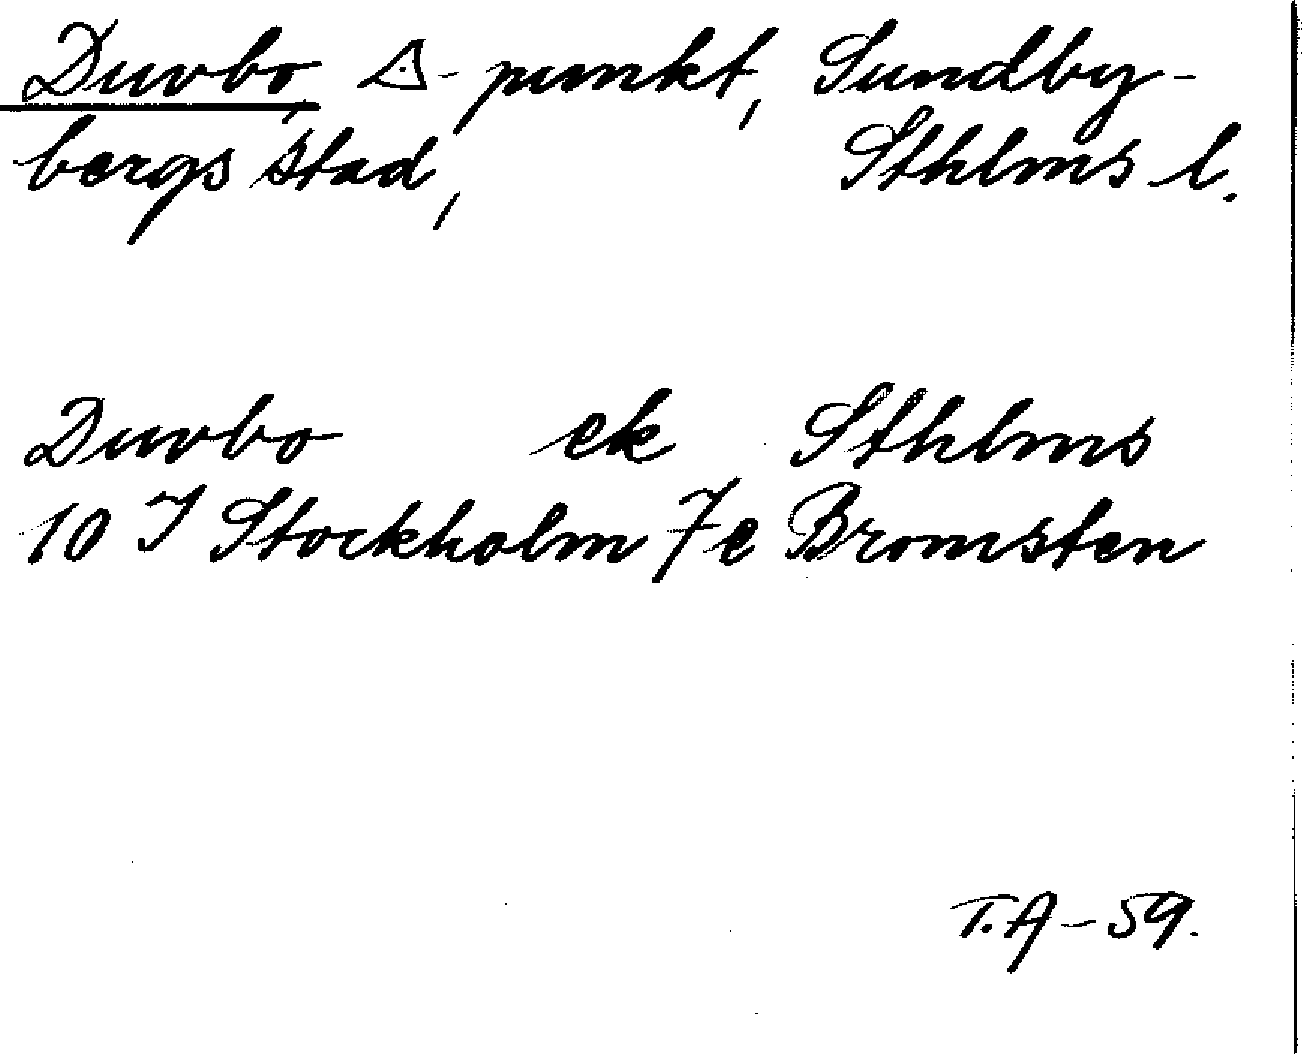 Duvbo, △-punkt, Sundby-
bergs stad, Sthlms l.
Duvbo ek Sthlms
10 I Stockholm 7e Bromsten
T.A-59.